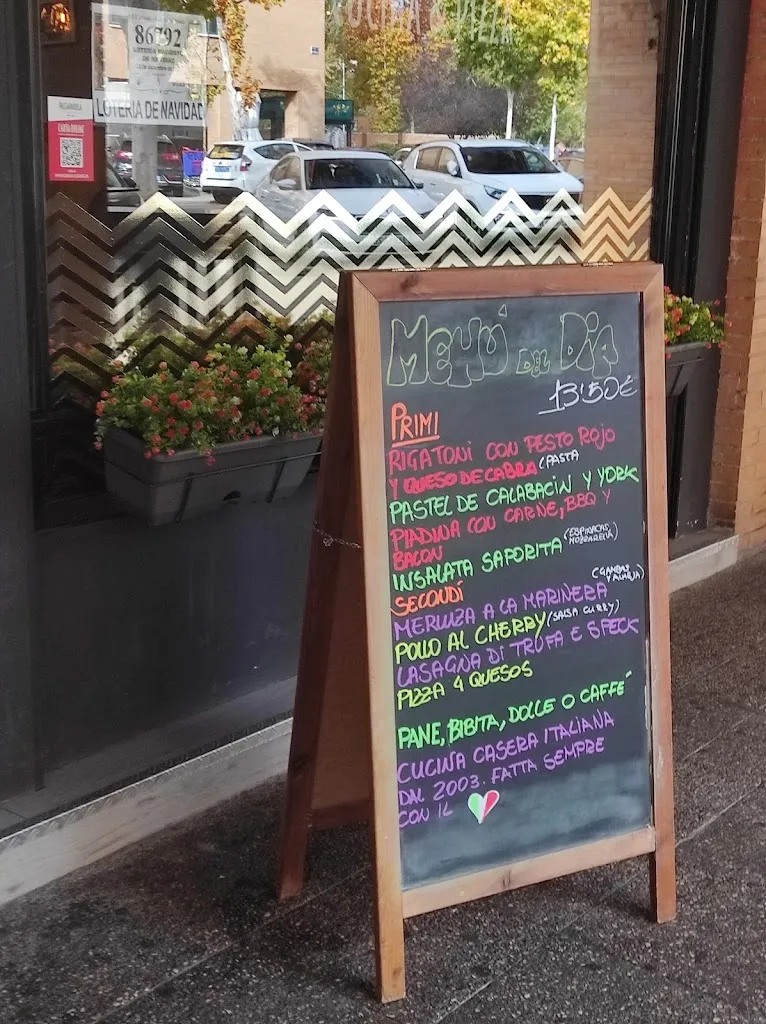 COCINA & VILLA
86792
LOTERÍA NACIONAL
DE NAVIDAD
LOTERIA DE NAVIDAD
CARTA ONLINE
MENÚ DEL DIA
13'50€
PRIMI
RIGATONI CON PESTO ROJO
Y QUESO DE CABRA (PASTA
PASTEL DE CALABACIN Y YORK
PIADINA CON CARNE, BBQ Y
BACON
INSALATA SAPORITA (ESPINACAS,
MOZZARELLA)
SECONDÍ
MERLUZA A LA MARINERA (GAMBAS
Y ALMEJA)
POLLO AL CHERRY (SALSA CURRY)
LASAGNA DI TRUFA E SPECK
PIZZA 4 QUESOS
PANE, BIBITA, DOLCE O CAFFÉ
CUCINA CASERA ITALIANA
DAL 2003. FATTA SEMPRE
CON IL